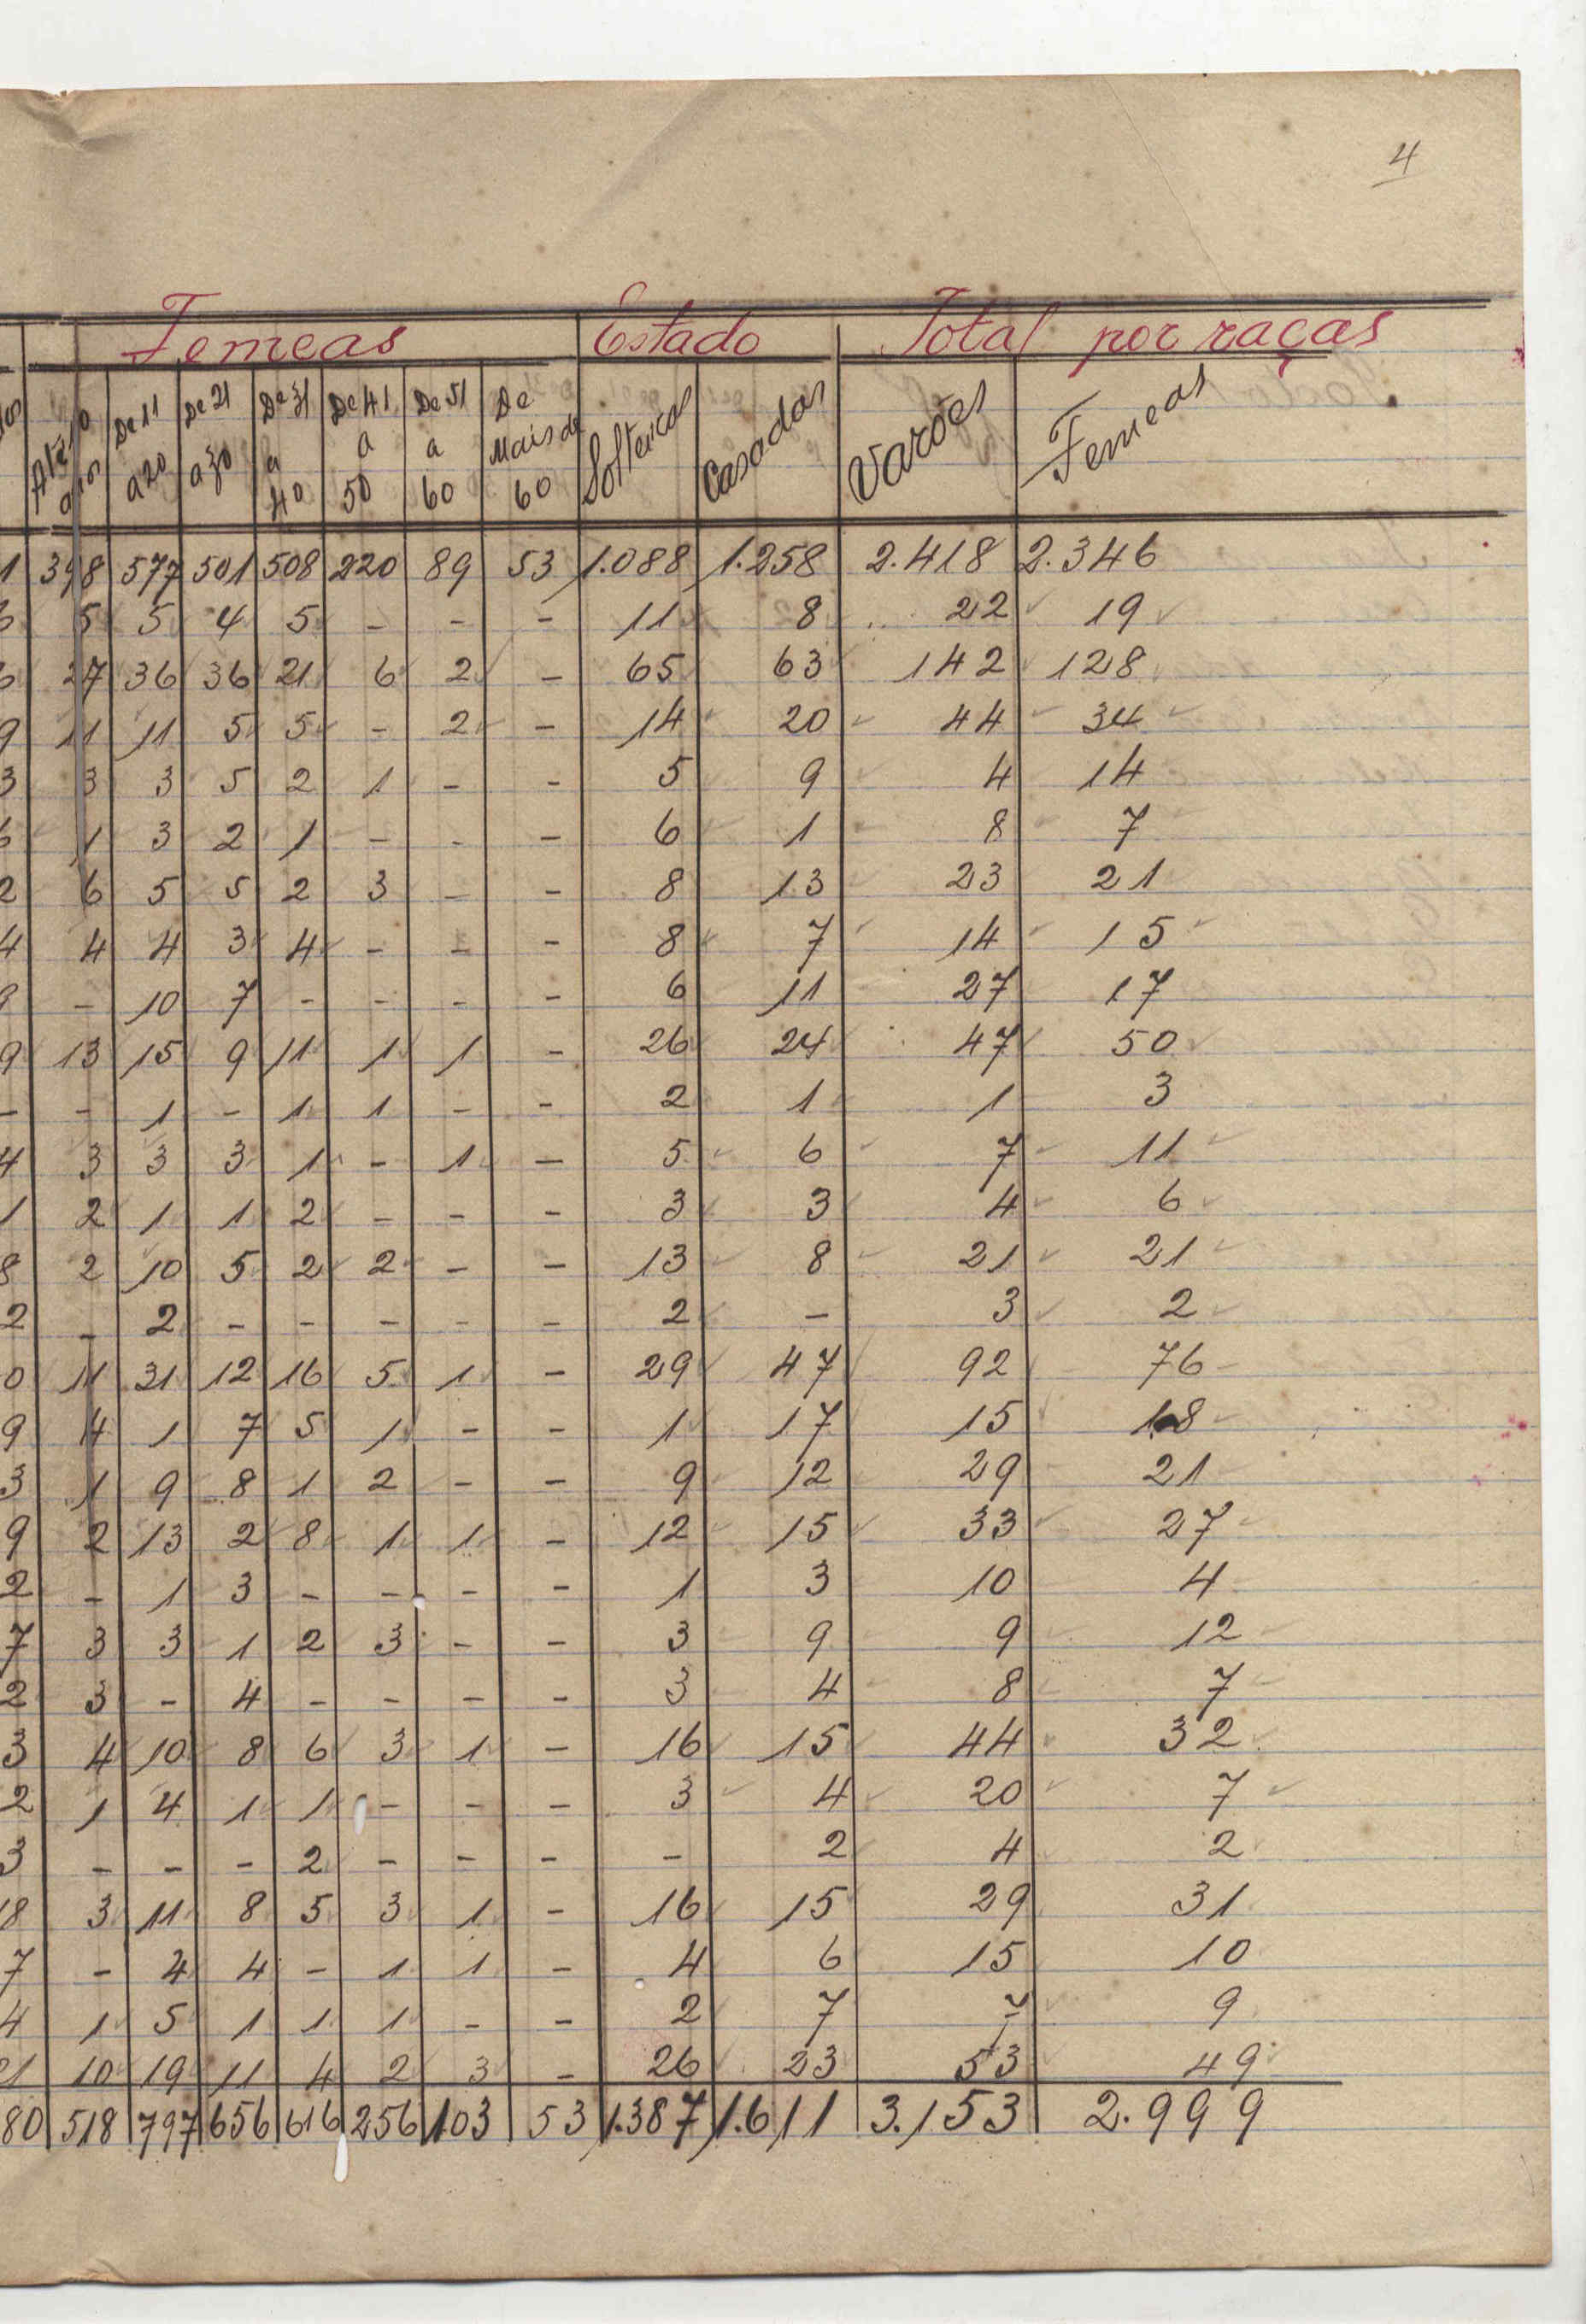 4
Femeas Estado Total por raças
Até 10 anos De 11 a 20 De 21 a 30 De 31 a 40 De 41 a 50 De 51 a 60 De Mais de 60 Solteiras Casadas Varões Femeas
1 398 577 501 508 220 89 53 1.088 1.258 2.418 2.346
5 5 4 5 - - - 11 8 22 19
27 36 36 21 6 2 - 65 63 142 128
9 11 11 5 5 - 2 - 14 20 44 34
3 3 3 5 2 1 - - 5 9 4 14
6 1 3 2 1 - - - 6 1 8 7
2 6 5 5 2 3 - - 8 13 23 21
4 4 4 3 4 - - - 8 7 14 15
9 - 10 7 - - - - 6 11 27 17
9 13 15 9 11 1 1 - 26 24 47 50
- - 1 - 1 1 - - 2 1 1 3
4 3 3 3 1 - 1 - 5 6 7 11
1 2 1 1 2 - - - 3 3 4 6
8 2 10 5 2 2 - - 13 8 21 21
2 - 2 - - - - - 2 - 3 2
0 11 31 12 16 5 1 - 29 47 92 76
9 4 1 7 5 1 - - 1 17 15 18
3 1 9 8 1 2 - - 9 12 29 21
9 2 13 2 8 1 1 - 12 15 33 27
2 - 1 3 - - - - 1 3 10 4
7 3 3 1 2 3 - - 3 9 9 12
2 3 - 4 - - - - 3 4 8 7
3 4 10 8 6 3 1 - 16 15 44 32
2 1 4 1 1 - - - 3 4 20 7
3 - - - 2 - - - - 2 4 2
18 3 11 8 5 3 1 - 16 15 29 31
7 - 4 4 - 1 1 - 4 6 15 10
4 1 5 1 1 1 - - 2 7 7 9
21 10 19 11 4 2 3 - 26 23 53 49
80 518 797 656 616 256 103 53 1.387 1.611 3.153 2.999